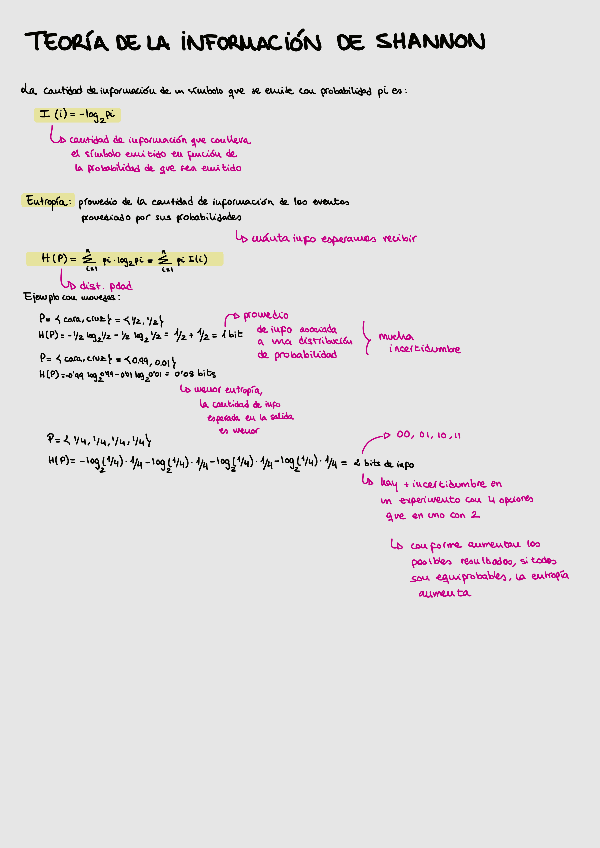 TEORÍA DE LA INFORMACIÓN DE SHANNON
La cantidad de información de un símbolo que se emite con probabilidad pi es:
I(i) = -log₂pi
↳ cantidad de información que conlleva
el símbolo emitido en función de
la probabilidad de que sea emitido
Entropía: promedio de la cantidad de información de los eventos
promediado por sus probabilidades
↳ cuánta info esperamos recibir
H(P) = Σ pi·log₂pi = Σ pi I(i)
↳ dist. pdad
Ejemplo con monedas:
P = {cara, cruz} = {1/2, 1/2}
H(P) = -1/2 log₂1/2 - 1/2 log₂1/2 = 1/2 + 1/2 = 1 bit
→ promedio
de info asociada
a una distribución
de probabilidad
mucha
incertidumbre
P = {cara, cruz} = {0.99, 0.01}
H(P) = -0'99 log₂0'99 - 0'01 log₂0'01 = 0'08 bits
↳ menor entropía,
la cantidad de info
esperada en la salida
es menor
P = {1/4, 1/4, 1/4, 1/4}
H(P) = -log₂(1/4)·1/4 - log₂(1/4)·1/4 - log₂(1/4)·1/4 - log₂(1/4)·1/4 = 2 bits de info
→ 00, 01, 10, 11
↳ hay + incertidumbre en
un experimento con 4 opciones
que en uno con 2
↳ conforme aumentan los
posibles resultados, si todos
son equiprobables, la entropía
aumenta